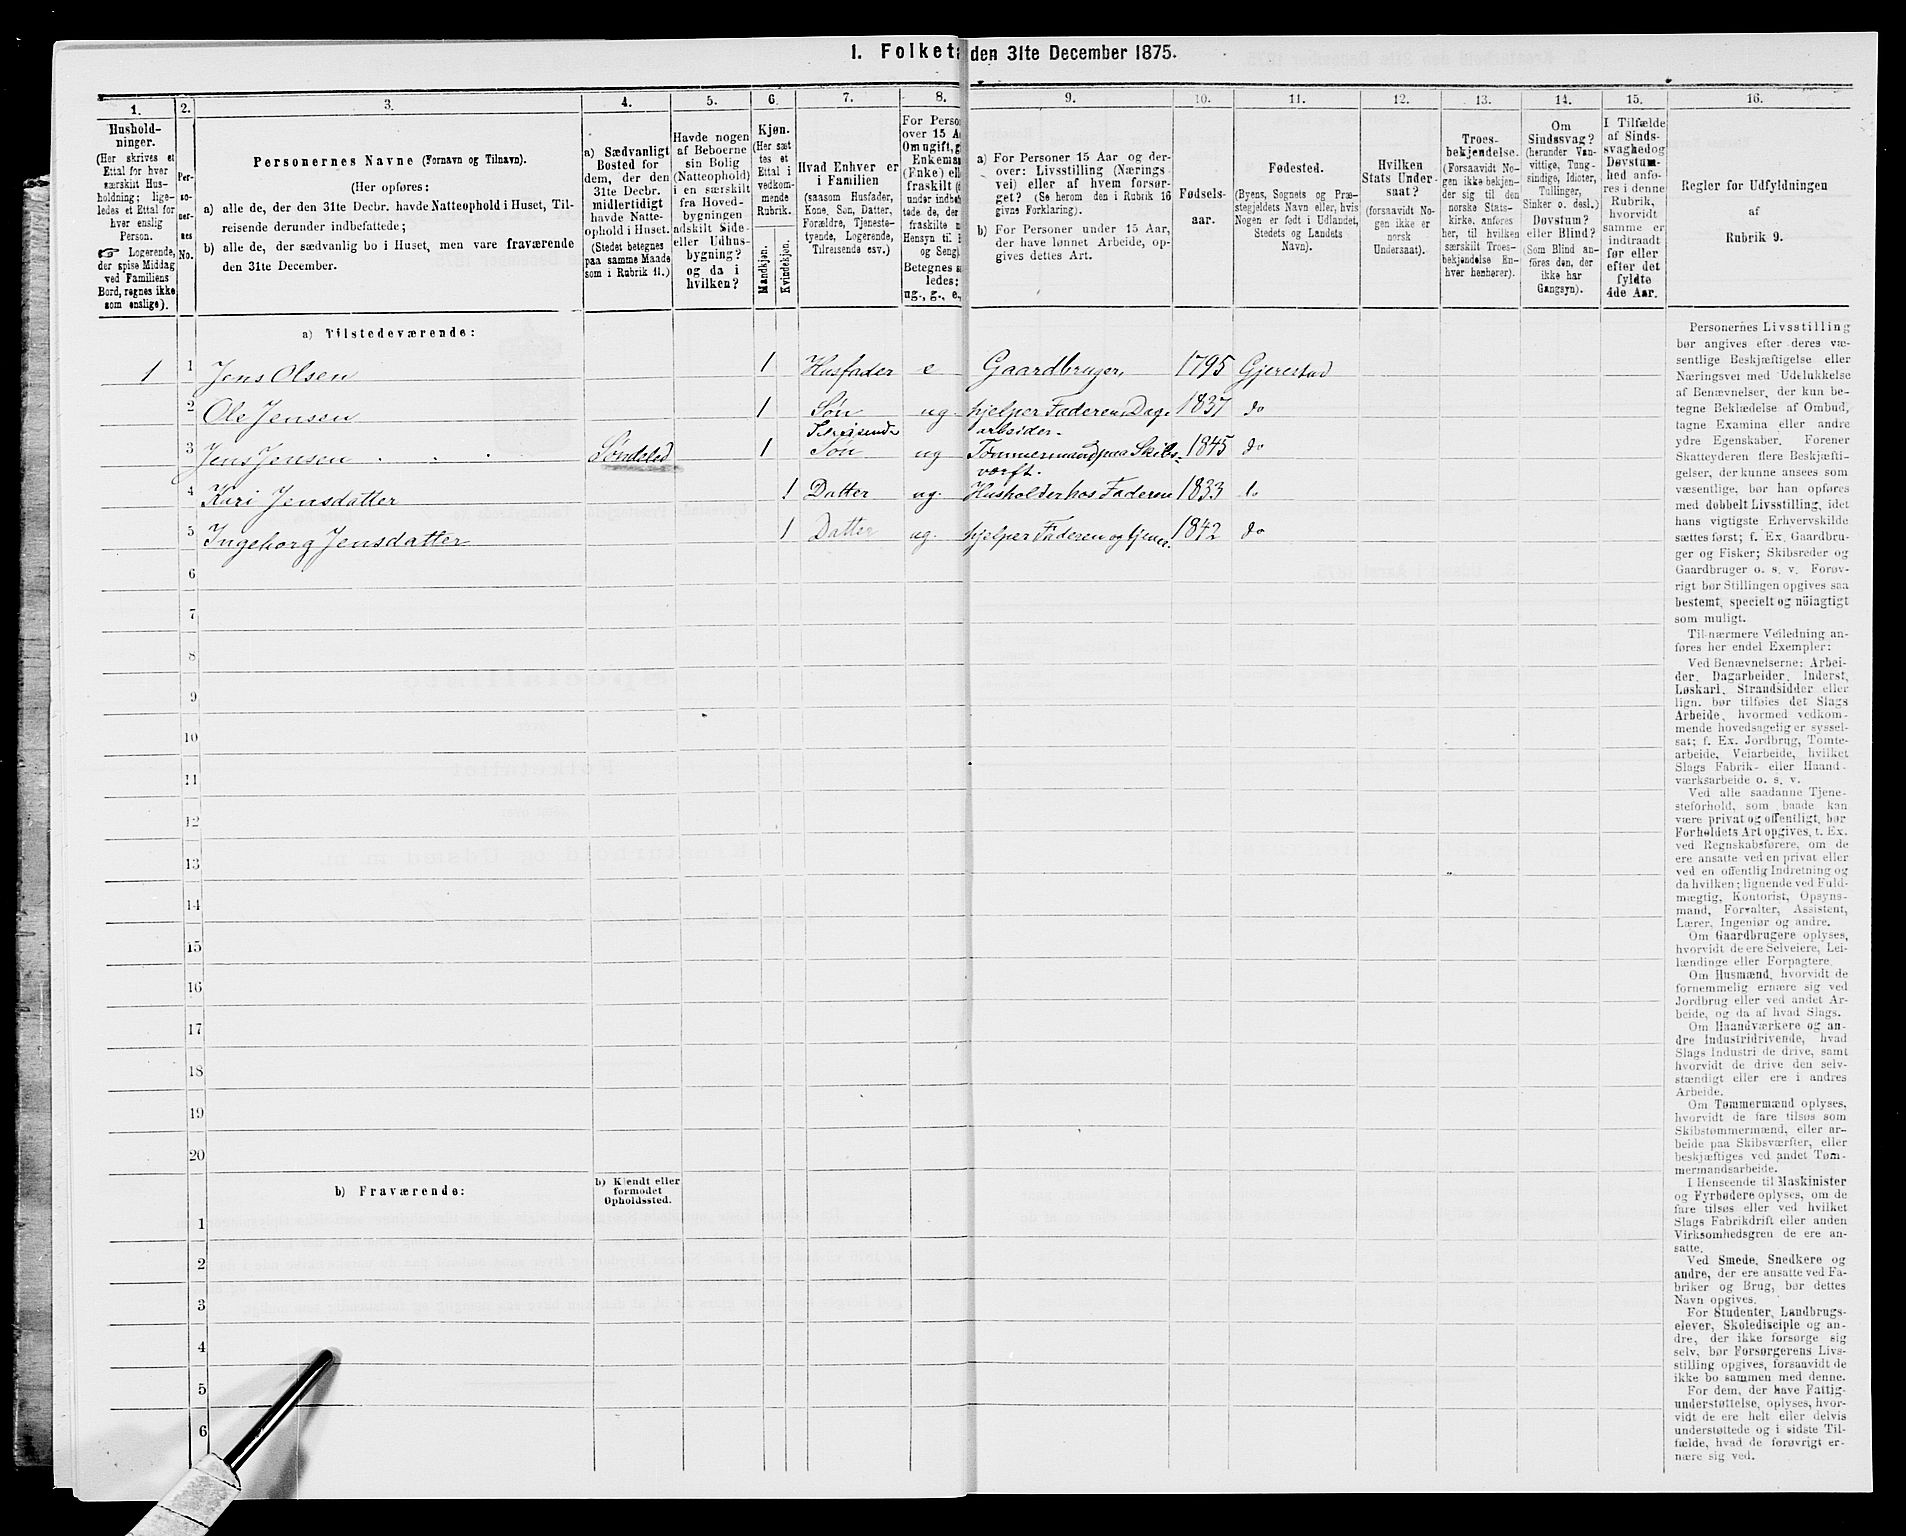 1. Folket den 31te December 1875.
1. 2. 3. 4. 5. 6. 7. 8. 9. 10. 11. 12. 13. 14. 15. 16.
Hushold-
ninger.
(Her skrives et
Ettal for hver
særskilt Hus-
holdning; lige-
ledes et Ettal for
hver enslig
Person.
☞ Logerende,
der spise Middag
ved Familiens
Bord, regnes ikke
som enslige).
Per-
so-
ner-
nes
No.
Personernes Navne (Fornavn og Tilnavn).
(Her opføres:
a) alle de, der den 31te Decbr. havde Natteophold i Huset, Til-
reisende derunder indbefattede;
b) alle de, der sædvanlig bo i Huset, men vare fraværende
den 31te December.
a) Sædvanligt
Bosted for
dem, der den
31te Decbr.
midlertidigt
havde Natte-
ophold i Huset.
(Stedet betegnes
paa samme Maade
som i Rubrik 11.)
Havde nogen
af Beboerne
sin Bolig
(Natteophold)
i en særskilt
fra Hoved-
bygningen
adskilt Side-
eller Udhus-
bygning?
og da i
hvilken?
Kjøn.
(Her sæt
tes et
Ettal i
vedkom-
mende
Rubrik.
Mandkjøn.
Kvindekjøn.
Hvad Enhver er
i Familien
(saasom Husfader,
Kone, Søn, Datter,
Forældre, Tjeneste-
tyende, Logerende,
Tilreisende osv.)
For Person
over 15 A
Om ugift, g
Enkeman
(Enke) ell
fraskilt (
under indbe
tede de, der
fraskilte m
Hensyn til
og Seng)
Betegnes s
ledes:
ug., g., e.,
a) For Personer 15 Aar og der-
over: Livsstilling (Nærings-
vei) eller af hvem forsør-
get? (Se herom den i Rubrik 16
givne Forklaring).
b) For Personer under 15 Aar,
der have lønnet Arbeide, op-
gives dettes Art.
Fødsels-
aar.
Fødested.
(Byens, Sognets og Præ-
stegjeldets Navn eller, hvis
Nogen er født i Udlandet,
Stedets og Landets
Navn).
Hvilken
Stats Under-
saat?
(forsaavidt No-
gen ikke er
norsk
Undersaat).
Troes-
bekjendelse.
(Forsaavidt No-
gen ikke bekjen-
der sig til den
norske Stats-
kirke, anføres
her, til hvilken
særskilt Troes-
bekjendelse En-
hver henhører).
Om
Sindssvag?
(herunder Van-
vittige, Tung-
sindige, Idioter,
Tullinger,
Sinker o. desl.)
Døvstum?
eller Blind?
(Som Blind an-
føres den, der
ikke har
Gangsyn).
I Tilfælde
af Sinds-
svaghed og
Døvstum-
hed anfø-
res i denne
Rubrik,
hvorvidt
samme er
indtraadt
før eller
efter det
fyldte
4de Aar.
Regler for Udfyldningen
af
Rubrik 9.
a) Tilstedeværende:
1 1 Jens Olsen 1 Husfader e Gaardbruger, 1795 Gjerestad
2 Ole Jensen 1 Søn ug. hjelper Faderen, Dag-
arbeider. 1837 do
3 Jens Jensen Søndeled 1 Tilreisende
Søn ug Tømmermand paa Skibs-
værft. 1845 do
4 Kari Jensdatter 1 Datter ug. Husholder hos Faderen 1833 do
5 Ingeborg Jensdatter 1 Datter ug. hjelper Faderen og tjener. 1842 do
6
7
8
9
10
11
12
13
14
15
16
17
18
19
20
b) Fraværende:
b) Kjendt eller
formodet
Opholdssted.
1
2
3
4
5
6
Personernes Livsstilling
bør angives efter deres væ-
sentlige Beskjæftigelse eller
Næringsvei med Udelukkelse
af Benævnelser, der kun be-
tegne Beklædelse af Ombud,
tagne Examina eller andre
ydre Egenskaber. Forener
Skatteyderen flere Beskjæfti-
gelser, der kunne ansees som
væsentlige, bør han opføres
med dobbelt Livsstilling, idet
hans vigtigste Erhvervskilde
sættes først; f. Ex. Gaardbru-
ger og Fisker; Skibsreder og
Gaardbruger o. s. v. Forøv-
rigt bør Stillingen opgives saa
bestemt, specielt og nöiagtigt
som muligt.
Til nærmere Veiledning an-
føres her endel Exempler:
Ved Benævnelserne: Arbei-
der, Dagarbeider, Inderst,
Løskarl, Strandsidder eller
lign. bør tilføies det Slags
Arbeide, hvormed vedkom-
mende hovedsagelig er syssel-
sat; f. Ex. Jordbrug, Tomte-
arbeide, Veiarbeide, hvilket
Slags Fabrik- eller Haand-
værksarbeide o. s. v.
Ved alle saadanne Tjene-
steforhold, som baade kan
være privat og offentligt, bør
Forholdets Art opgives, t. Ex.
ved Regnskabsførere, om de
ere ansatte ved en privat eller
ved en offentlig Indretning og
da hvilken; lignende ved Fuld-
mægtig, Kontorist, Opsyns-
mand, Forvalter, Assistent,
Lærer, Ingeniør og andre.
Om Gaardbrugere oplyses,
hvorvidt de ere Selveiere, Lei-
lændinge eller Forpagtere.
Om Husmænd, hvorvidt de
fornemmelig ernære sig ved
Jordbrug eller ved andet Ar-
beide, og da af hvad Slags.
Om Haandværkere og an-
dre Industridrivende, hvad
Slags Industri de drive, samt
hvorvidt de drive den selv-
stændigt eller ere i andres
Arbeide.
Om Tømmermænd oplyses,
hvorvidt de fare tilsøs som
Skibstømmermænd, eller ar-
beide paa Skibsværfter, eller
beskjæftiges ved andet Tøm-
mermandsarbeide.
I Henseende til Maskinister
og Fyrbødere oplyses, om de
fare tilsøs eller ved hvilket
Slags Fabrikdrift eller anden
Virksomhedsgren de ere an-
satte.
Ved Smede, Snedkere og
andre, der ere ansatte ved Fa-
briker og Brug, bør dettes
Navn opgives.
For Studenter, Landbrugs-
elever, Skoledisciple og an-
dre, der ikke forsørge sig
selv, bør Forsørgerens Livs-
stilling opgives, forsaavidt de
ikke bo sammen med denne.
For dem, der have Fattig-
understøttelse, oplyses, hvor-
vidt de ere helt eller delvis
understøttede og i sidste Til-
fælde, hvad de forøvrigt er-
nære sig ved.